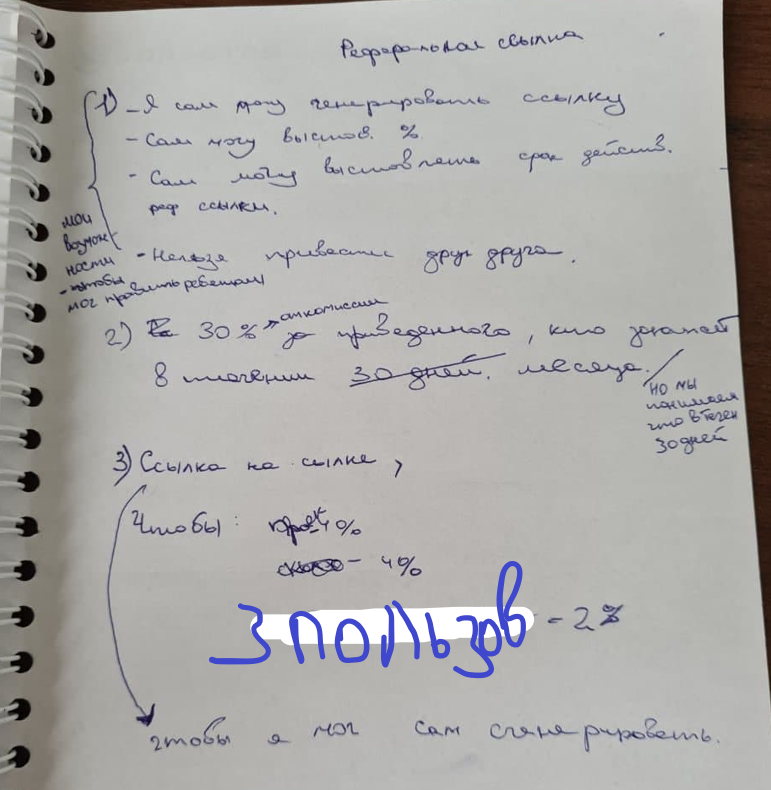 Реферальная ссылка
1) - Я сам могу генерировать ссылку
- Сам могу выстав. %
- Сам могу выставлять срок действ.
реф ссылки.
мои
возможности
- Нельзя привести друг друга.
- чтобы
мог править ребетам
2) 30% от комиссии за приведенного, кто
в течении 30 дней. месяца.
но мы
понимаем
что в течен
30 дней
3) Ссылка на сылке,
Чтобы: 4%
- 4%
3 пользов - 2%
чтобы я мог сам сгенерировать.